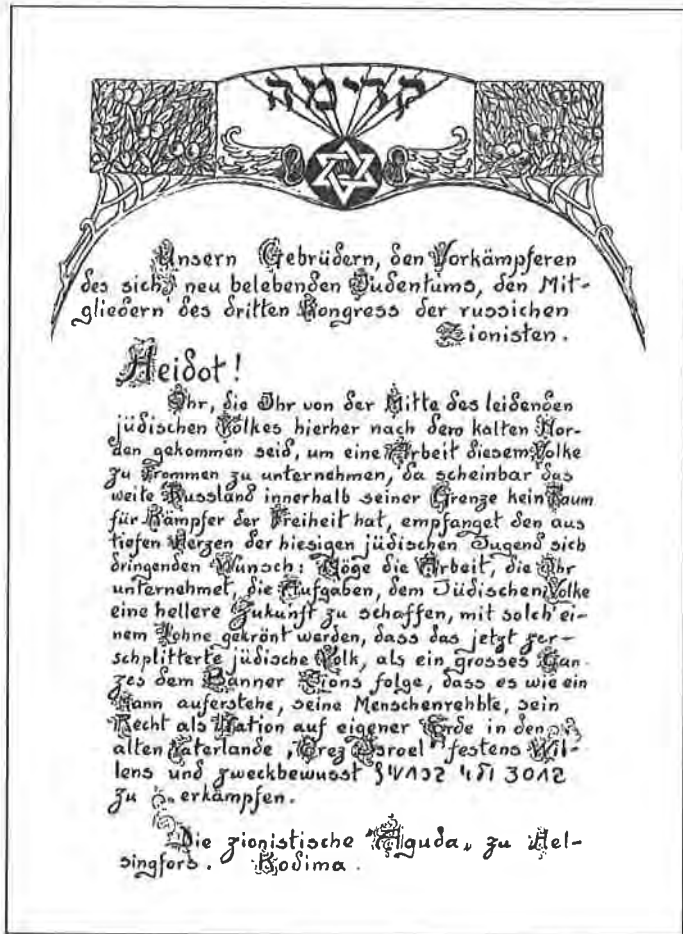 קדימה
Unsern Gebrüdern, den Vorkämpferen
des sich neu belebenden Judentums, den Mit-
gliedern des dritten Kongress der russichen
Zionisten.
Heidot!
Ihr, die Ihr von der Mitte des leidenden
jüdischen Volkes hierher nach dem kalten Nor-
den gekommen seid, um eine Arbeit diesem Volke
zu Frommen zu unternehmen, da scheinbar das
weite Russland innerhalb seiner Grenze kein Raum
für Kämpfer der Freiheit hat, empfanget den aus
tiefen Herzen der hiesigen jüdischen Jugend sich
dringenden Wunsch: Möge die Arbeit, die Ihr
unternehmet, die Aufgaben, dem Jüdischen Volke
eine hellere Zukunft zu schaffen, mit solch' ei-
nem Lohne gekrönt werden, dass das jetzt zer-
schplitterte jüdische Volk, als ein grosses Gan-
zes dem Banner Zions folge, dass es wie ein
Mann auferstehe, seine Menschenrehbte, sein
Recht als Nation auf eigener Erde in den
alten Vaterlande „Erez Isroel" festens Wil-
lens und zweckbewusst
zu erkämpfen.
Die zionistische „Aguda„ zu Hel-
singfors. Kodima.